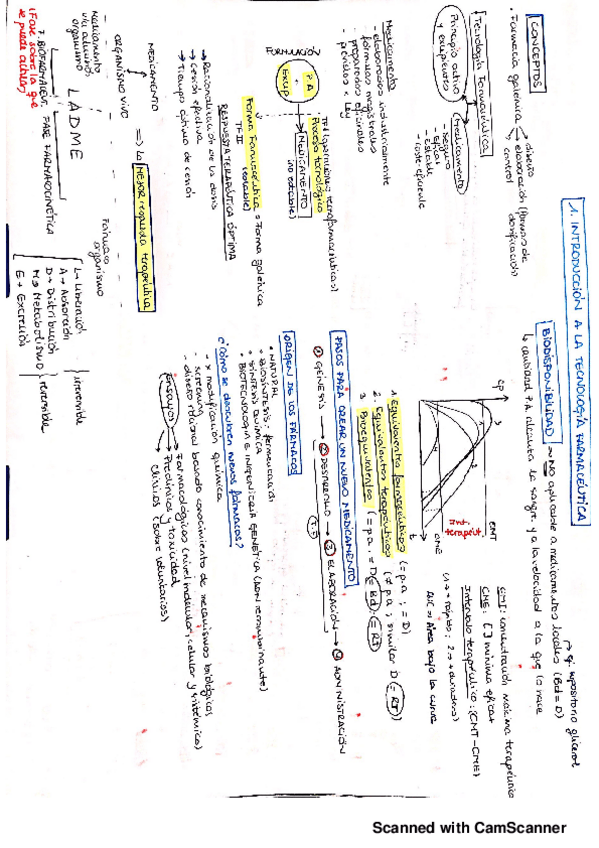 1. INTRODUCCIÓN A LA TECNOLOGÍA FARMACÉUTICA
CONCEPTOS
· Farmacia galénica
diseño
elaboración (formas de dosificación)
control
Tecnología Farmacéutica
Principio activo y excipientes
medicamento
- seguro
- eficaz
- estable
- coste eficiente
Medicamento
- elaborados industrialmente
- fórmulas magistrales
- preparados oficinales
- previstos x ley
FORMULACIÓN
P.A
+
Excip
Proceso tecnológico
MEDICAMENTO
(no estable)
Forma Farmacéutica = Forma galénica
(estable)
TFII
RESPUESTA TERAPÉUTICA ÓPTIMA
→ Racionalización de la dosis
→ cesión efectiva
→ Tiempo óptimo de cesión
MEDICAMENTO
ORGANISMO VIVO
=> la MEJOR respuesta terapéutica
Medicamento
organismo
Fármaco
organismo
LADME
L → Liberación
A → Absorción
D → Distribución
M → Metabolismo
E → Excreción
irreversible
reversible
FASE FARMACOCINÉTICA
(Fase sobre la que se puede actuar)
BIODISPONIBILIDAD
→ NO aplicable a medicamentos locales (Bd = D)
→ ej. supositorio glicerol
↳ cantidad P.A. alcanza la sangre y a la velocidad a la que lo hace
Cp
t
CMT
CME
int. terapéut
CMT: concentración máxima terapéutica
CME: [ ] mínima eficaz
Intervalo terapéutico: (CMT-CME)
(1 → + rápido; 2 → + duradero)
AUC → Área bajo la curva
1. Equivalentes farmacéuticos (= p.a ; = D)
2. Equivalentes terapéuticos (≠ p.a, similar D = RT)
3. Bioequivalentes (= p.a. = D = Bd = RT)
PASOS PARA CREAR UN NUEVO MEDICAMENTO
① GÉNESIS → ② DESARROLLO → ③ ELABORACIÓN → ④ ADMINISTRACIÓN
ORIGEN DE LOS FÁRMACOS
· NATURAL
· BIOSÍNTESIS:
· SÍNTESIS QUÍMICA
· BIOTECNOLOGÍA E INGENIERÍA GENÉTICA (ADN recombinante)
¿Cómo se descubren nuevos fármacos?
- x modificación química
- screening
- diseño racional basado conocimiento de mecanismos biológicos
Ensayos
Farmacológicos (nivel molecular, celular y sistémico)
Preclínicos y toxicidad
Clínicos (sobre voluntarios)
Scanned with CamScanner